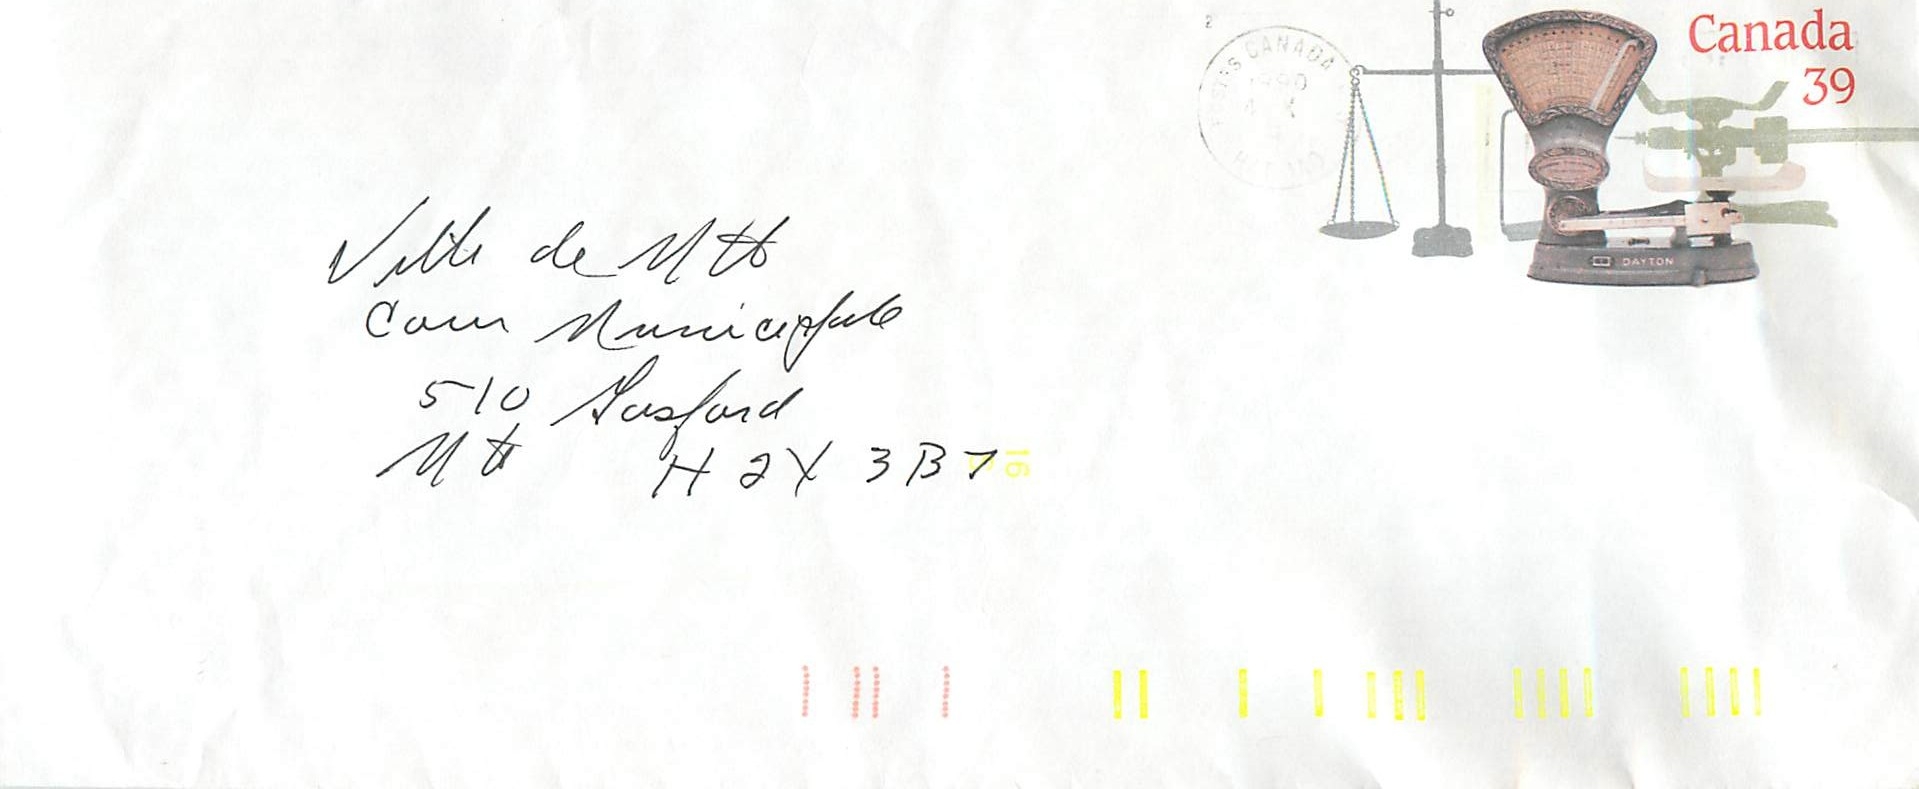 Canada
39
CANADA
1990
DAYTON
Ville de Mtl
Cour Municipale
510 Gosford
Mtl H2X 3B7
16